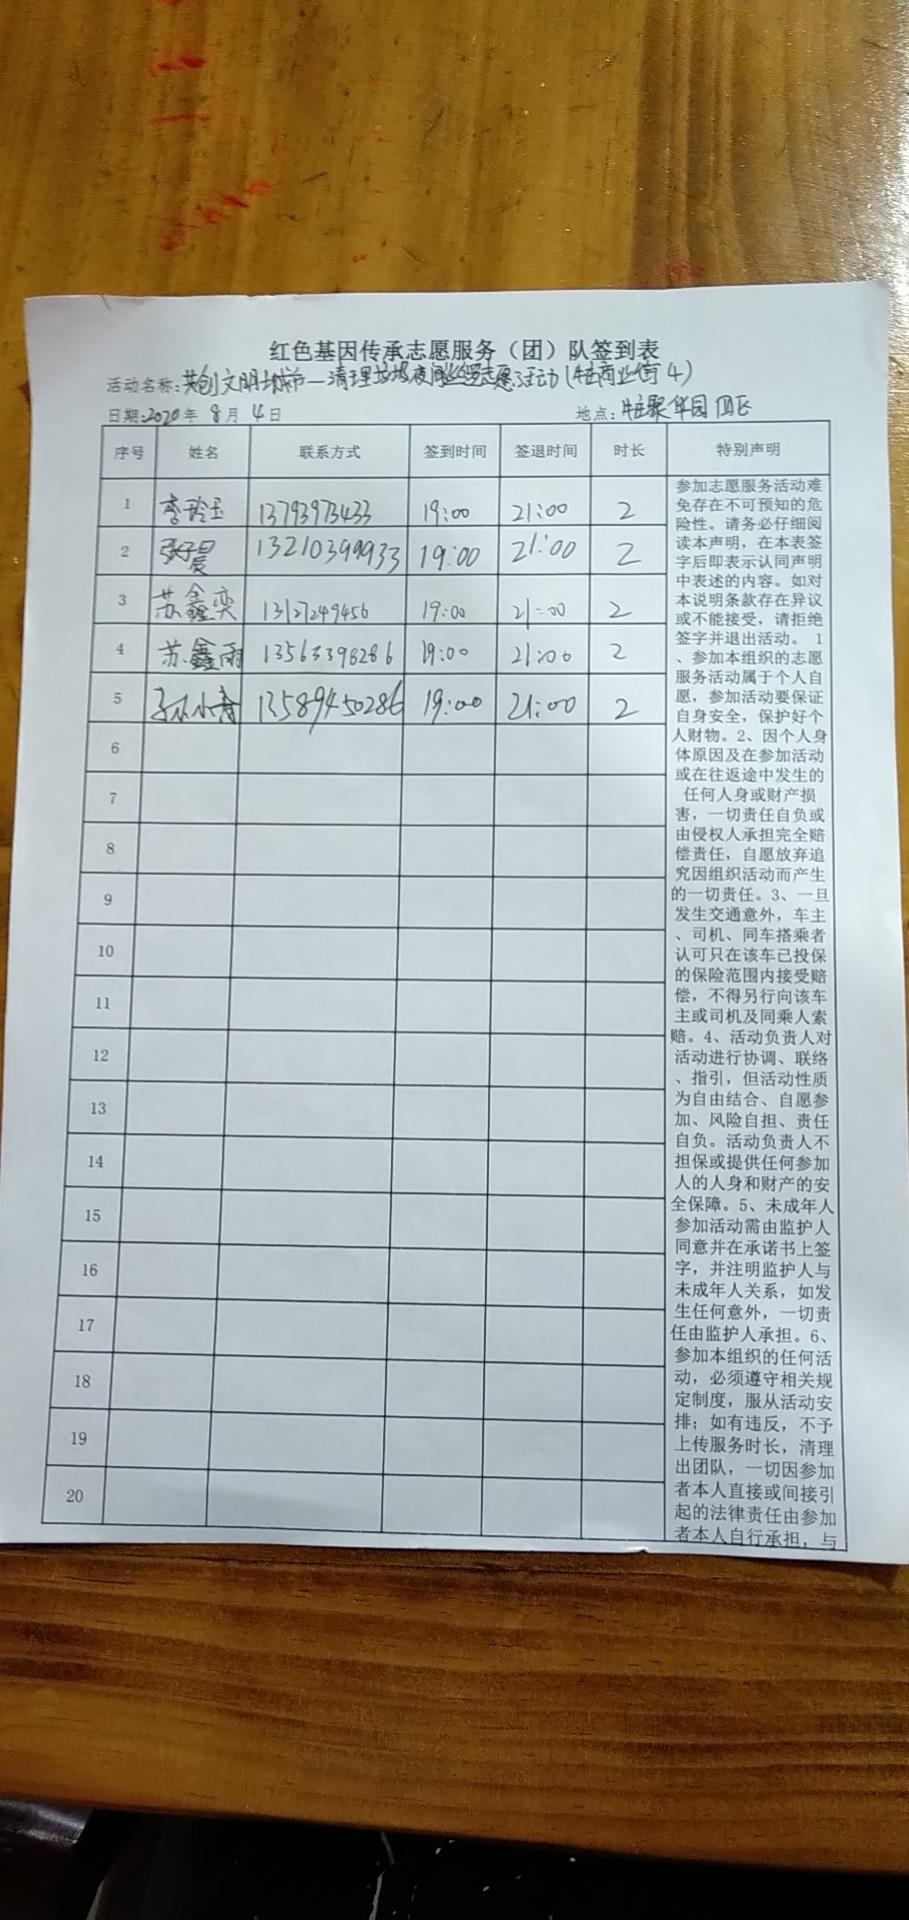 红色基因传承志愿服务（团）队签到表
活动名称：共创文明城市—清理垃圾夜间巡逻志愿活动(牡商业街4)
日期：2020年 8月 4日 地点：牡聚华园四区
序号 姓名 联系方式 签到时间 签退时间 时长 特别声明
1 李玲玉 13793973433 19:00 21:00 2
2 张子昊 13210399933 19:00 21:00 2
3 苏鑫奕 13127249456 19:00 21:00 2
4 苏鑫雨 13563398286 19:00 21:00 2
5 孙小青 13589450286 19:00 21:00 2
6
7
8
9
10
11
12
13
14
15
16
17
18
19
20
参加志愿服务活动难
免存在不可预知的危
险性。请务必仔细阅
读本声明，在本表签
字后即表示认同声明
中表述的内容。如对
本说明条款存在异议
或不能接受，请拒绝
签字并退出活动。 1
、参加本组织的志愿
服务活动属于个人自
愿，参加活动要保证
自身安全，保护好个
人财物。2、因个人身
体原因及在参加活动
或在往返途中发生的
任何人身或财产损
害，一切责任自负或
由侵权人承担完全赔
偿责任，自愿放弃追
究因组织活动而产生
的一切责任。3、一旦
发生交通意外，车主
、司机、同车搭乘者
认可只在该车已投保
的保险范围内接受赔
偿，不得另行向该车
主或司机及同乘人索
赔。4、活动负责人对
活动进行协调、联络
、指引，但活动性质
为自由结合、自愿参
加、风险自担、责任
自负。活动负责人不
担保或提供任何参加
人的人身和财产的安
全保障。5、未成年人
参加活动需由监护人
同意并在承诺书上签
字，并注明监护人与
未成年人关系，如发
生任何意外，一切责
任由监护人承担。6、
参加本组织的任何活
动，必须遵守相关规
定制度，服从活动安
排；如有违反，不予
上传服务时长，清理
出团队，一切因参加
者本人直接或间接引
起的法律责任由参加
者本人自行承担，与